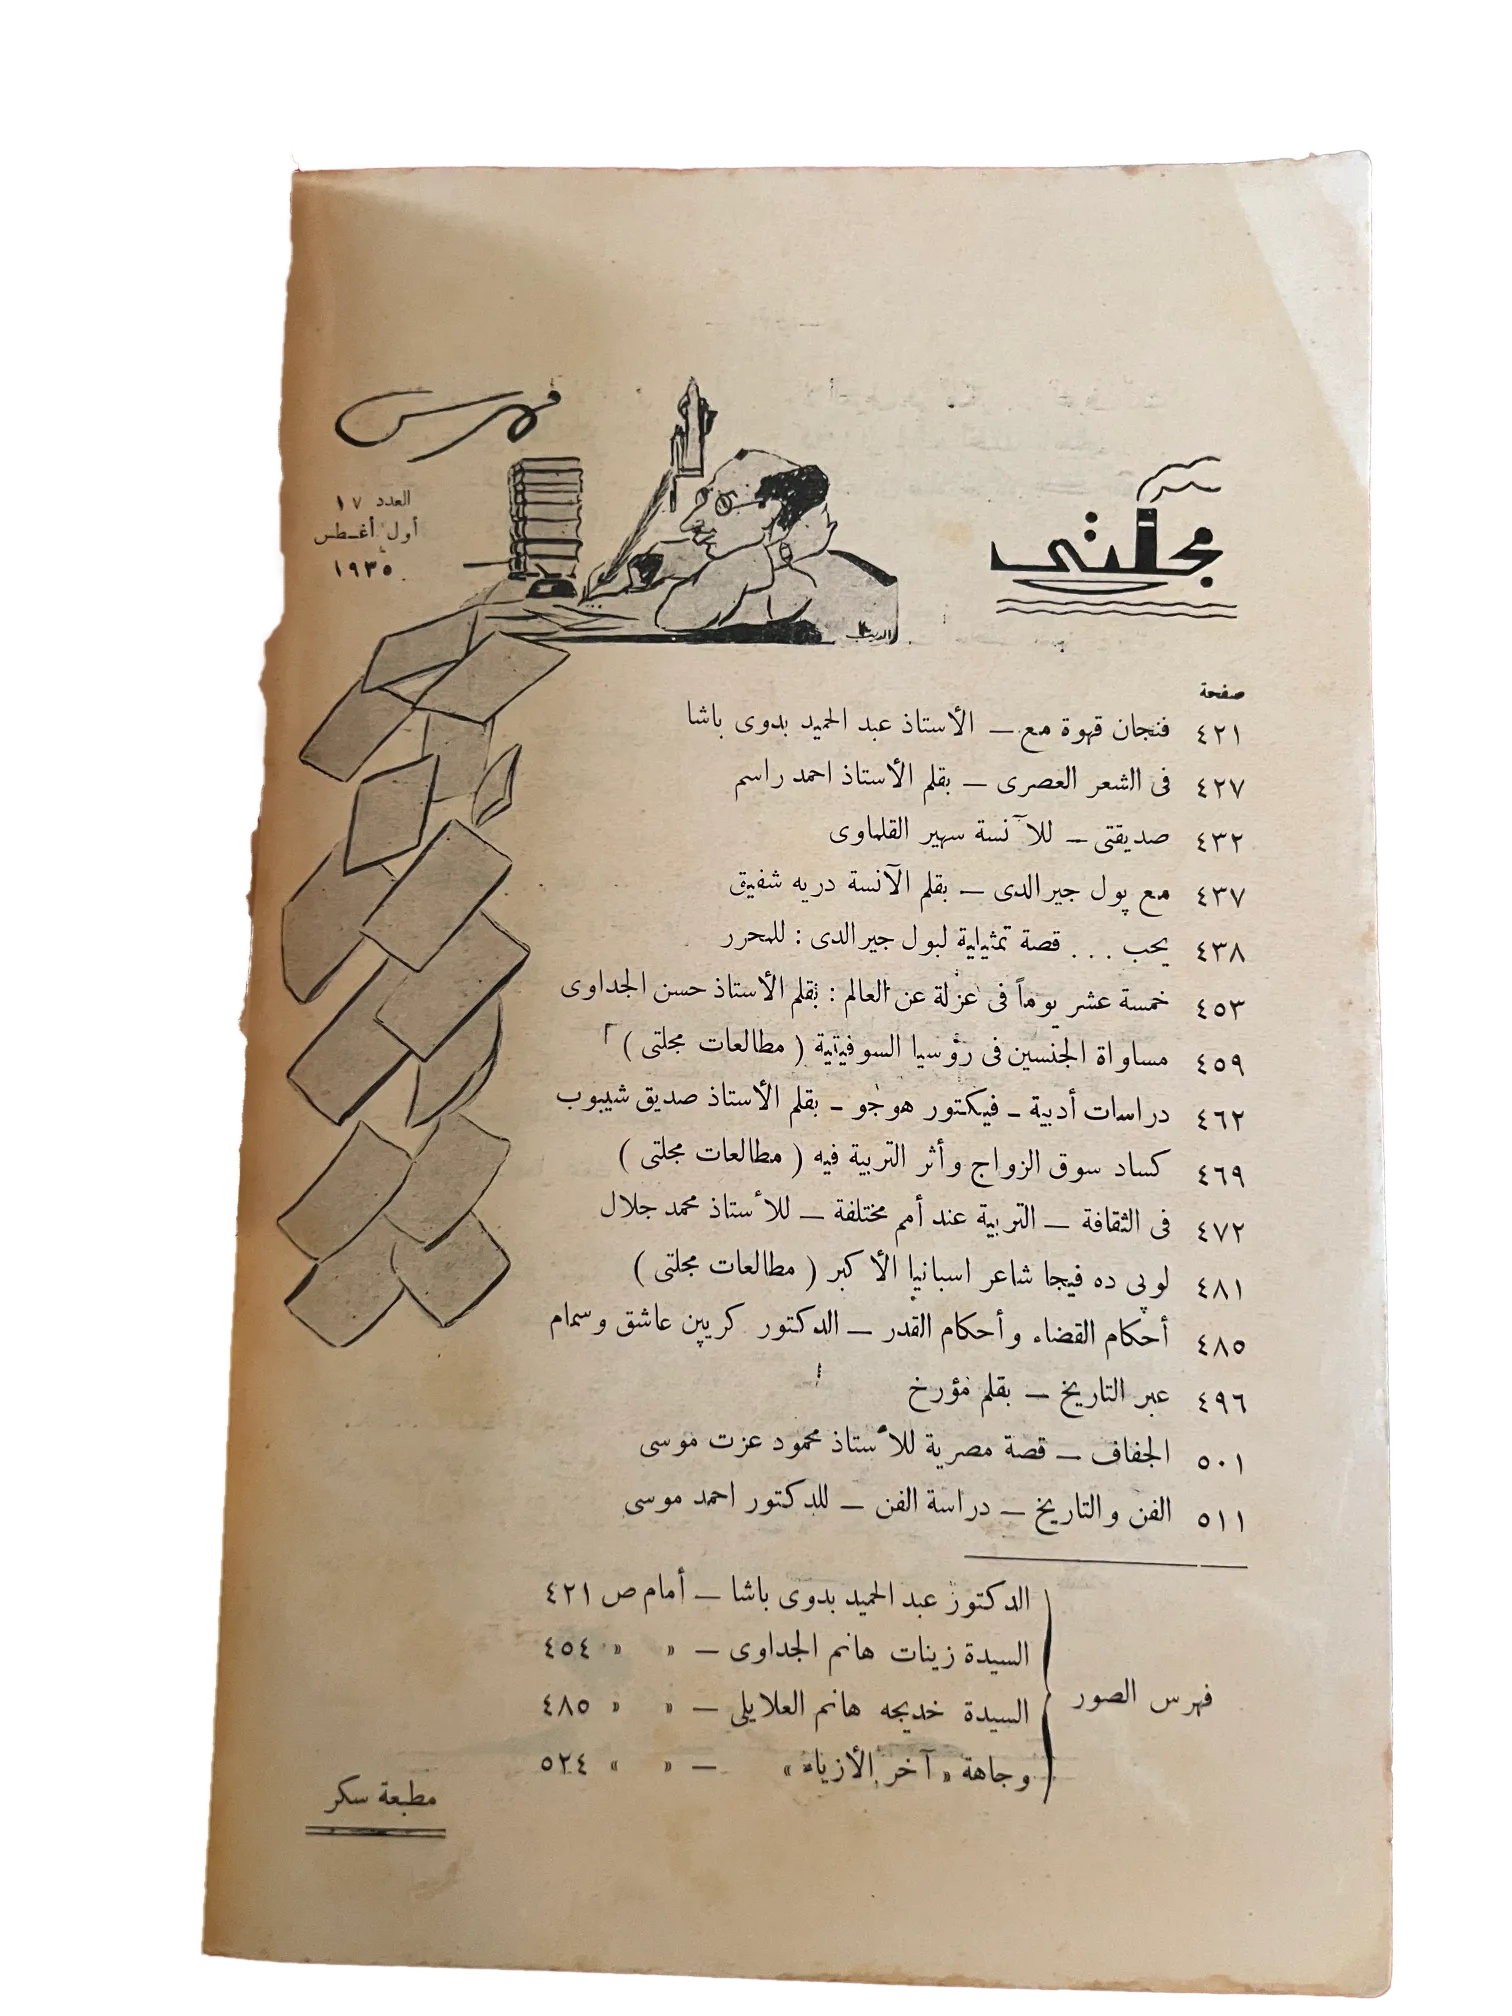 فهرس
العدد ١٧
أول أغسطس
١٩٣٥
مجلتى
صفحة
٤٢١ فنجان قهوة مع – الأستاذ عبد الحميد بدوى باشا
٤٢٧ فى الشعر العصرى – بقلم الأستاذ احمد راسم
٤٣٢ صديقتى – للآنسة سهير القلماوى
٤٣٧ مع پول جيرالدى – بقلم الآنسة دريه شفيق
٤٣٨ يحب ... قصة تمثيلية لبول جيرالدى : للمحرر
٤٥٣ خمسة عشر يوماً فى عزلة عن العالم : بقلم الأستاذ حسن الجداوى
٤٥٩ مساواة الجنسين فى رؤسيا السوفيتية ( مطالعات مجلتى )
٤٦٢ دراسات أدبية - فيكتور هوجو - بقلم الأستاذ صديق شيبوب
٤٦٩ كساد سوق الزواج وأثر التربية فيه ( مطالعات مجلتى )
٤٧٢ فى الثقافة – التربية عند أمم مختلفة – للأستاذ محمد جلال
٤٨١ لوپى ده فيجا شاعر اسبانيا الأكبر ( مطالعات مجلتى )
٤٨٥ أحكام القضاء وأحكام القدر – الدكتور كريپن عاشق وسمام
٤٩٦ عبر التاريخ – بقلم مؤرخ
٥٠١ الجفاف – قصة مصرية للأستاذ محمود عزت موسى
٥١١ الفن والتاريخ – دراسة الفن – للدكتور احمد موسى
فهرس الصور
الدكتور عبد الحميد بدوى باشا – أمام ص ٤٢١
السيدة زينات هانم الجداوى – » » ٤٥٤
السيدة خديجه هانم العلايلى – » » ٤٨٥
وجاهة « آخر الأزياء » – » » ٥٢٤
مطبعة سكر